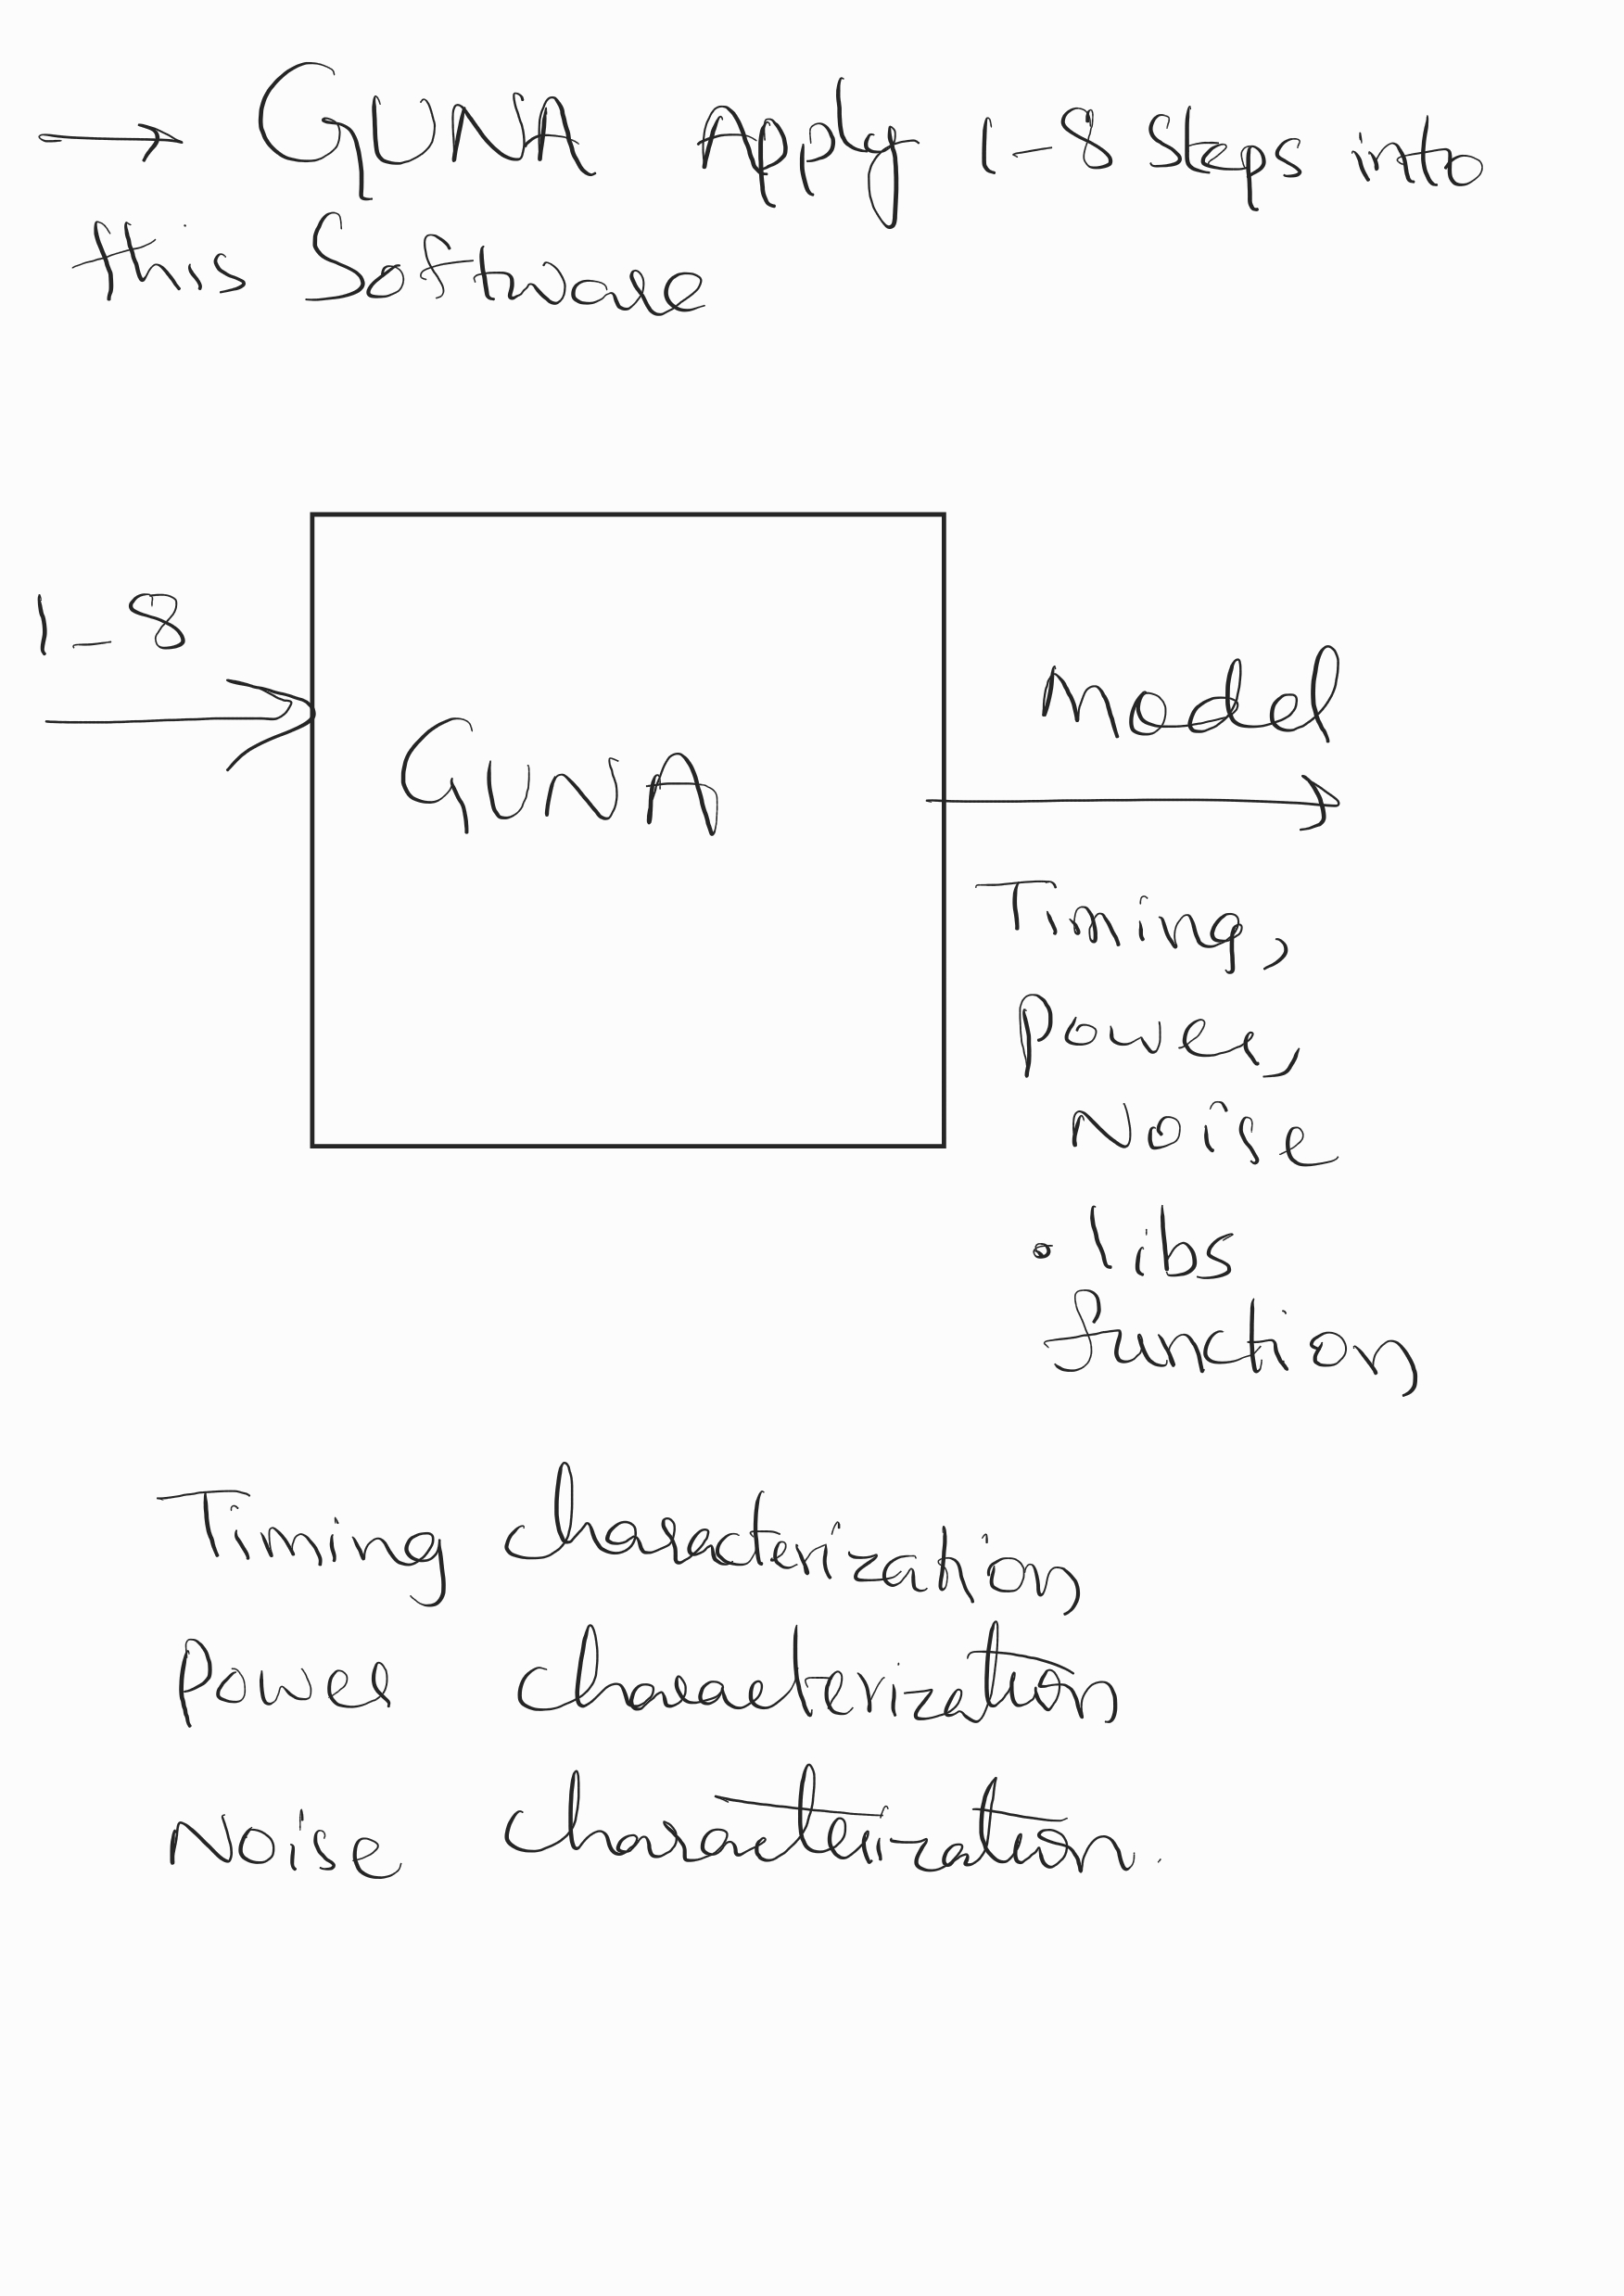 → GUNA Apply 1-8 steps into
this Software
1-8
GUNA
Model
Timing,
Power,
Noise
.libs
function
Timing characterization
Power characterization
Noise characterization.